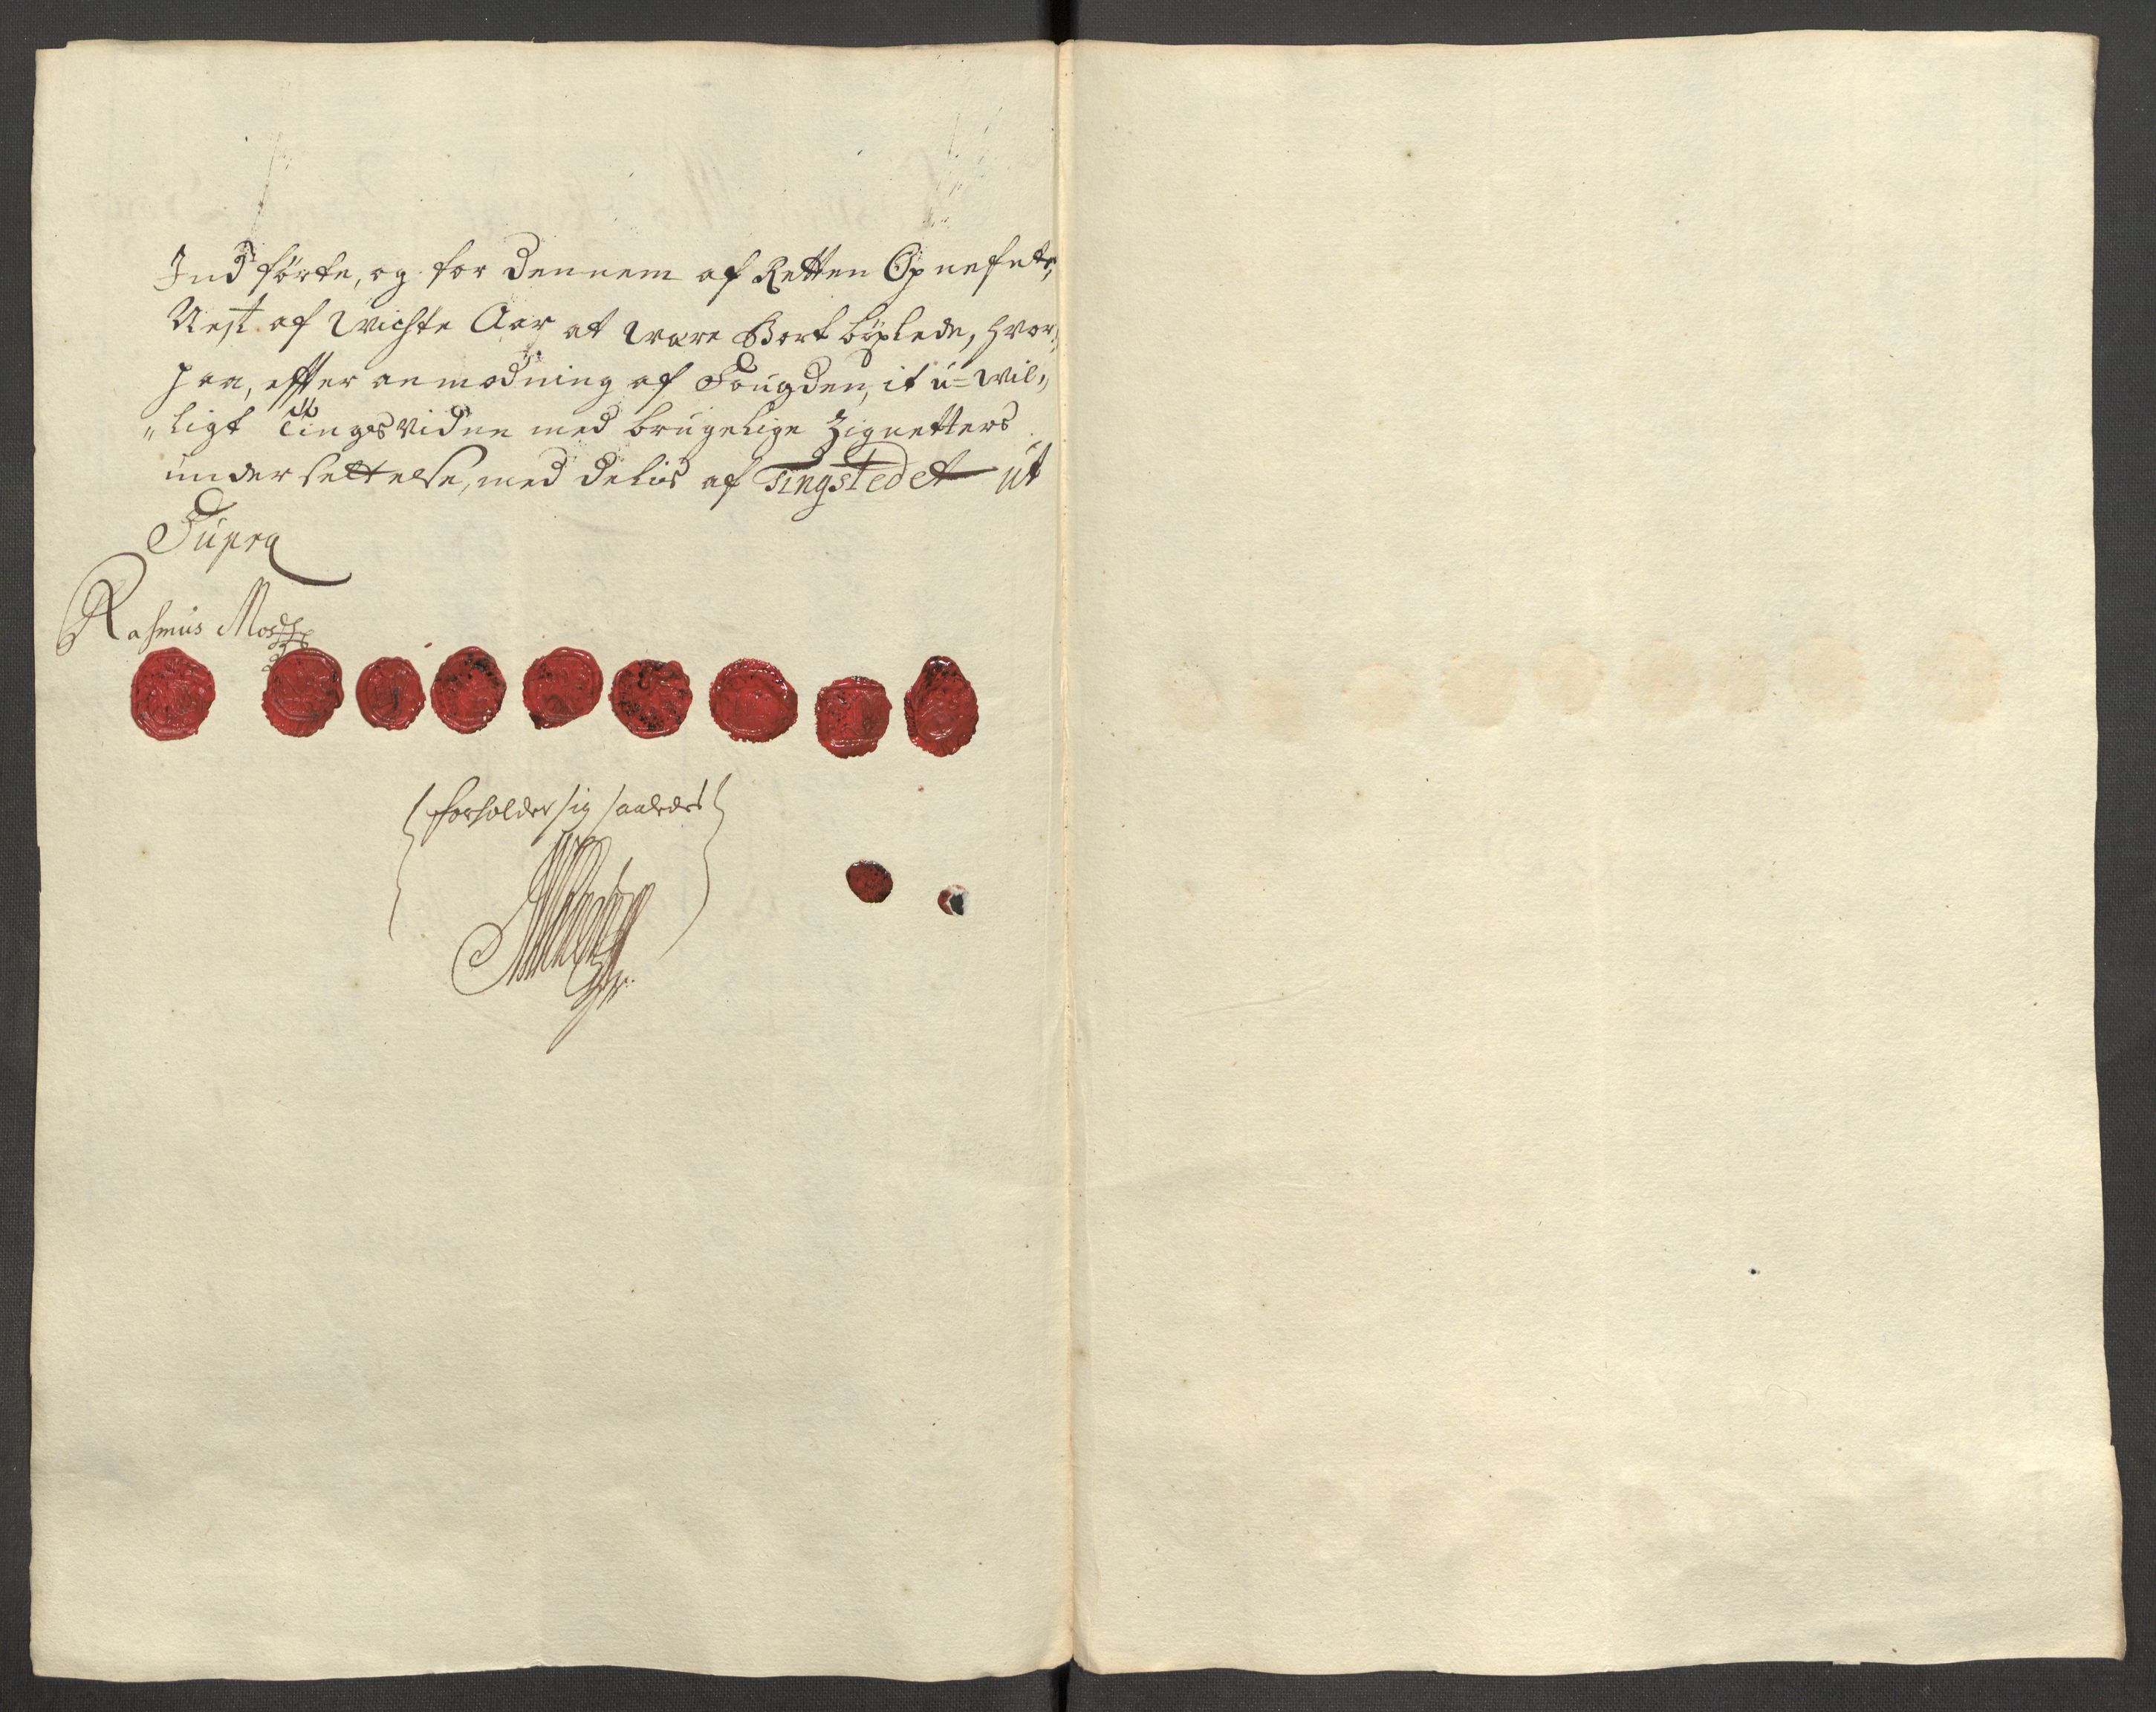 Indførte, og for dennem af Retten Opnefnte,
Nest af wichte Aar at være Bort böxlede, hvor,,
paa, effter anmodning af Fougden, it ú=wil,,
,,ligt Tings vidne med brugelige Zignetters
undersettelse, med delis af Tingstedet út
Supra
Rasmus
forholder sig saaledes